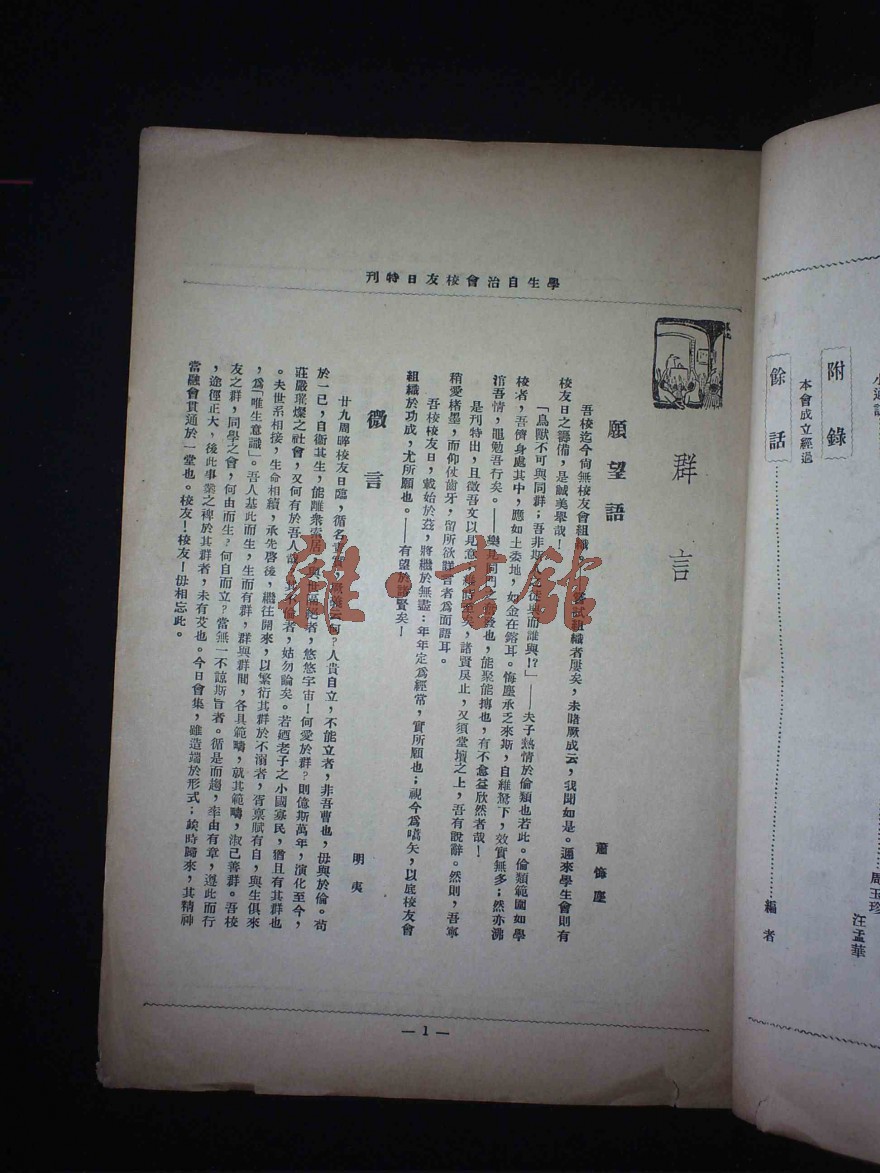 小通訊
周玉珍
汪孟華
附錄
本會成立經過
餘話
編者
學生自治會校友日特刊
群言
願望語
蕭悔塵
吾校迄今尚無校友會組織。嘗試組織者屢矣，未睹厥成云，我聞如是。邇來學生會則有
校友日之籌備，是誠美舉哉！
「鳥獸不可與同群；吾非斯人之徒與而誰與!?」——夫子熱情於倫類也若此。倫類範圍如學
校者，吾儕身處其中，應如土委地，如金在鎔耳。悔塵承乏來斯，自維駑下，效實無多；然亦沸
湆吾情，黽勉吾行矣。——樂見同門之奮發也，能聚能摶也，有不愈益欣然者哉！
是刊特出，且徵吾文以見意；維時至矣，諸賢戾止，又須堂壇之上，吾有說辭。然則，吾寧
稍愛楮墨，而仰仗齒牙，留所欲群言者為面語耳。
吾校校友日，載始於茲，將繼於無盡；年年定為經常，實所願也；視今為嚆矢，以底校友會
組織於功成，尤所願也。——有望於諸賢矣！
微言
明夷
廿九周晬校友日臨，循名責實，厥義云何？人貴自立，不能立者，非吾曹也，毋與於倫。苟
於一己，自衞其生，能離衆索居，與世隔絕者，悠悠宇宙！何愛於群？則億斯萬年，演化至今，
莊嚴璀燦之社會，又何有於吾人哉。其不倫者，姑勿論矣。若迺老子之小國寡民，猶且有其群也
。夫世系相接，生命相續，承先啓後，繼往開來，以繁衍其群於不溺者，胥稟賦有自，與生俱來
，為「唯生意識」。吾人基此而生，生而有群，群與群間，各具範疇，就其範疇，淑己善群。吾校
友之群，同學之會，何由而生？何自而立？當無一不諒斯旨者。循是而趨，率由有章，遵此而行
，途徑正大，後此事業之裨於其群者，未有艾也。今日會集，雖造端於形式；峻時歸來，其精神
當融會貫通於一堂也。校友！校友！毋相忘此。
—1—